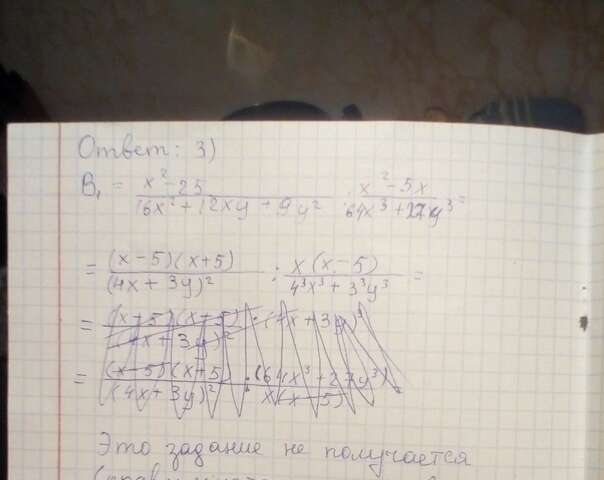 Ответ: 3)
B₁ = (x² - 25)/(16x² + 12xy + 9y²) : (x² - 5x)/(64x³ + 27y³) =
= (x - 5)(x + 5)/(4x + 3y)² : x(x - 5)/(4³x³ + 3³y³) =
= (x + 5)(x + 5)/(4x + 3y)² · (4x + 3y)³
= (x - 5)(x + 5)/(4x + 3y)² · (64x³ + 27y³)/x(x - 5)
Это задание не получается